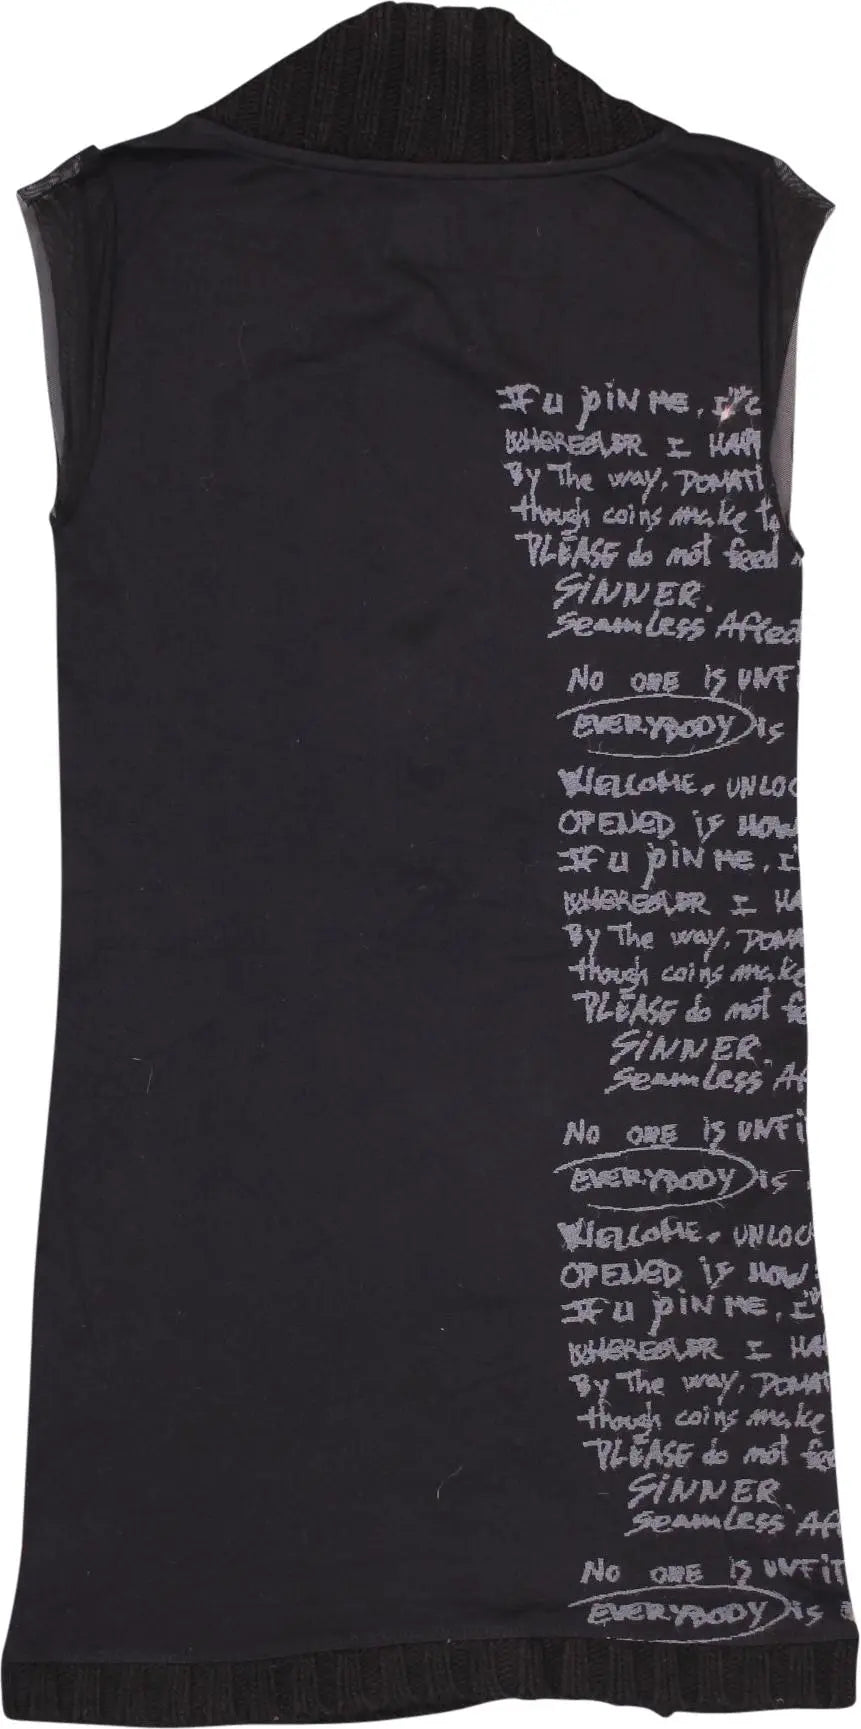 IF U PIN ME, I'
WHEREEVER I HAPP
By The way, DONATI
though coins make to
PLEASE do not feed
SINNER.
Seamless Affect
NO ONE IS UNFI
EVERYBODY IS
WELCOME. UNLOC
OPENED IS HOW
IF U PIN ME, I
WHEREEVER I HA
By The way, DONA
though coins make
PLEASE do not fe
SINNER.
Seamless Af
NO ONE IS UNFI
EVERYBODY IS
WELCOME. UNLOC
OPENED IS HOW
IF U PIN ME, I'
WHEREEVER I HA
By The way, DONAT
though coins make
PLEASE do not fee
SINNER.
Seamless Af
NO ONE IS UNFIT
EVERYBODY IS